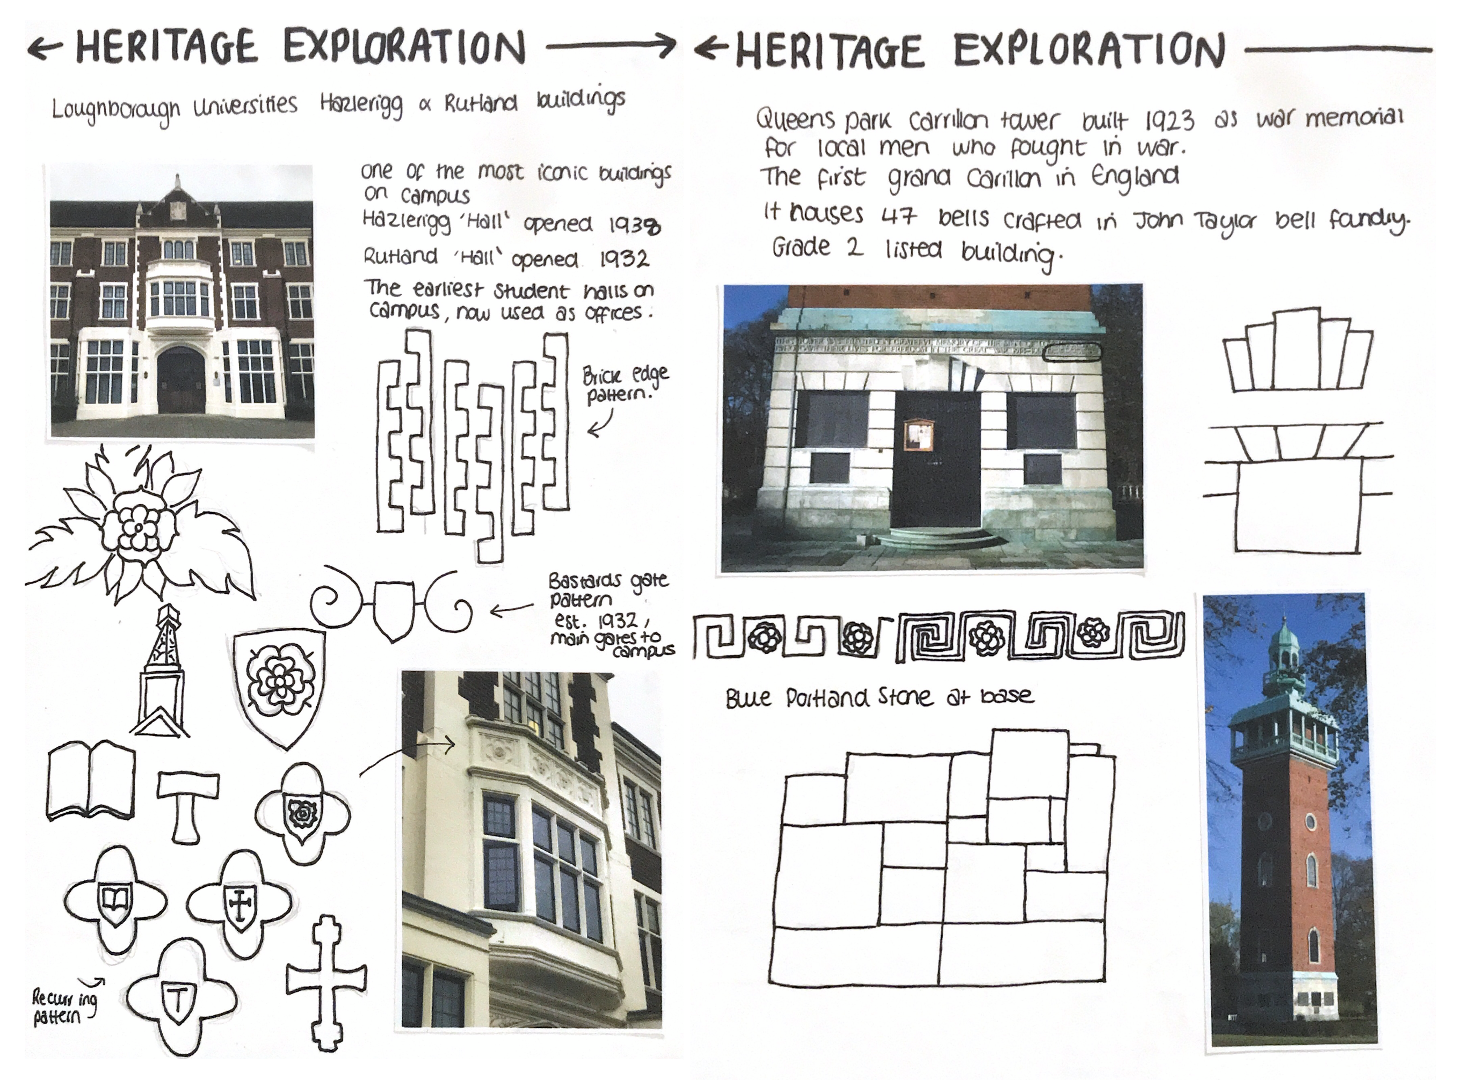 ← HERITAGE EXPLORATION →
Loughborough Universities Hazlerigg & Rutland buildings
one of the most iconic buildings
on campus
Hazlerigg 'Hall' opened 1938
Rutland 'Hall' opened 1932
The earliest student halls on
campus, now used as offices.
Brick edge
pattern.
Bastards gate
pattern
est. 1932,
main gates to
campus
Recurring
pattern
T
← HERITAGE EXPLORATION
Queens park Carrillon tower built 1923 as war memorial
for local men who fought in war.
The first grand Carillon in England
It houses 47 bells crafted in John Taylor bell foundry.
Grade 2 listed building.
Blue Portland Stone at base